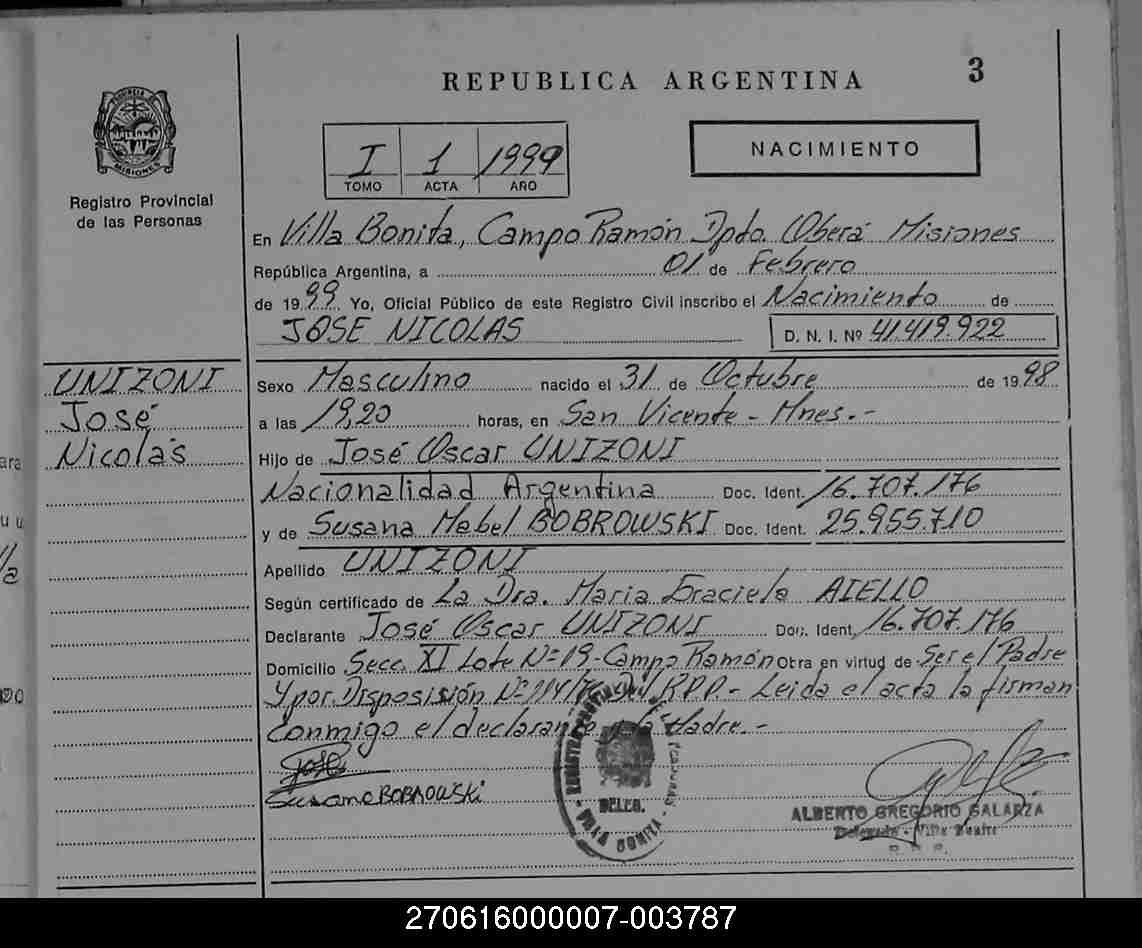 REPUBLICA ARGENTINA
3
PROVINCIA DE
MISIONES
Registro Provincial
de las Personas
I 1 1999
TOMO ACTA AÑO
NACIMIENTO
En Villa Bonita, Campo Ramón Dpto. Oberá Misiones
República Argentina, a 01 de Febrero
de 1999 Yo, Oficial Público de este Registro Civil inscribo el Nacimiento de
JOSE NICOLAS D. N. I. Nº 41.419.922
UNIZONI
José
Nicolás
Sexo Masculino nacido el 31 de Octubre de 1998
a las 19,20 horas, en San Vicente - Mnes.-
Hijo de José Oscar UNIZONI
Nacionalidad Argentina Doc. Ident. 16.707.176
y de Susana Mabel BOBROWSKI Doc. Ident. 25.955.710
Apellido UNIZONI
Según certificado de La Dra. Maria Graciela AIELLO
Declarante José Oscar UNIZONI Doc. Ident. 16.707.176
Domicilio Secc. XI Lote Nº 19-Campo Ramón Obra en virtud de Ser el Padre
Y por Disposisión Nº R.P.P.- Leida el acta la firman
conmigo el declarante y la Madre.-
José
Susana BOBROWSKI
DELEG.
VILLA BONITA
ALBERTO GREGORIO GALARZA
Delegado - Villa Bonita
R. P. P.
270616000007-003787